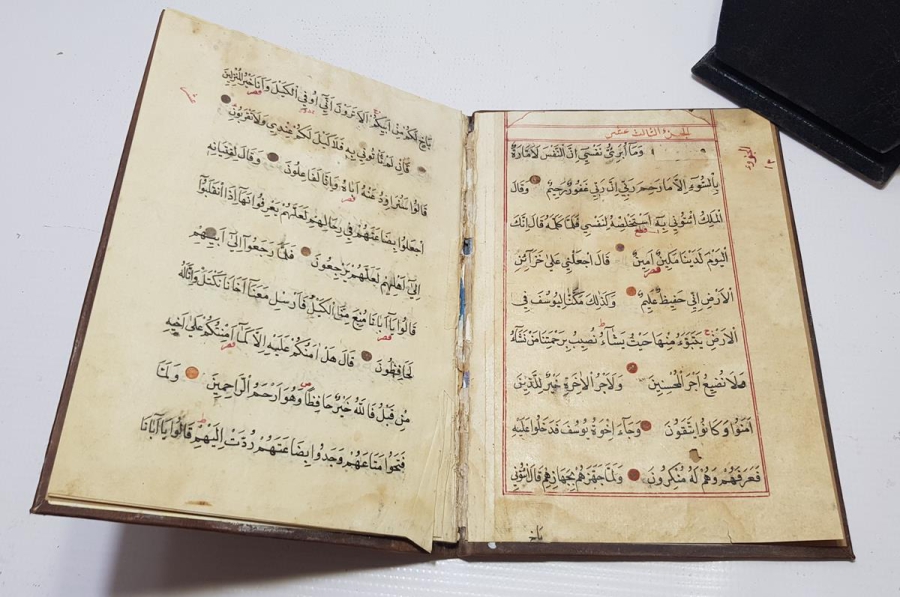 الجزء الثالث عشر
وَمَا أُبَرِّئُ نَفْسِي إِنَّ النَّفْسَ لَأَمَّارَةٌ
بِالسُّوءِ إِلَّا مَا رَحِمَ رَبِّي إِنَّ رَبِّي غَفُورٌ رَحِيمٌ وَقَالَ
الْمَلِكُ ائْتُونِي بِهِ أَسْتَخْلِصْهُ لِنَفْسِي فَلَمَّا كَلَّمَهُ قَالَ إِنَّكَ
الْيَوْمَ لَدَيْنَا مَكِينٌ أَمِينٌ قَالَ اجْعَلْنِي عَلَى خَزَآئِنِ
الْأَرْضِ إِنِّي حَفِيظٌ عَلِيمٌ وَكَذَلِكَ مَكَّنَّا لِيُوسُفَ فِي
الْأَرْضِ يَتَبَوَّءُ مِنْهَا حَيْثُ يَشَآءُ نُصِيبُ بِرَحْمَتِنَا مَنْ نَشَآءُ
وَلَا نُضِيعُ أَجْرَ الْمُحْسِنِينَ وَلَأَجْرُ الْآخِرَةِ خَيْرٌ لِلَّذِينَ
آمَنُوا وَكَانُوا يَتَّقُونَ وَجَآءَ إِخْوَةُ يُوسُفَ فَدَخَلُوا عَلَيْهِ
فَعَرَفَهُمْ وَهُمْ لَهُ مُنْكِرُونَ وَلَمَّا جَهَّزَهُمْ بِجَهَازِهِمْ قَالَ ائْتُونِي
بِأَخٍ
بِأَخٍ لَكُمْ مِنْ أَبِيكُمْ أَلَا تَرَوْنَ أَنِّي أُوفِي الْكَيْلَ وَأَنَا خَيْرُ الْمُنْزِلِينَ
فَإِنْ لَمْ تَأْتُونِي بِهِ فَلَا كَيْلَ لَكُمْ عِنْدِي وَلَا تَقْرَبُونِ
قَالُوا سَنُرَاوِدُ عَنْهُ أَبَاهُ وَإِنَّا لَفَاعِلُونَ وَقَالَ لِفِتْيَانِهِ
اجْعَلُوا بِضَاعَتَهُمْ فِي رِحَالِهِمْ لَعَلَّهُمْ يَعْرِفُونَهَا إِذَا انْقَلَبُوا
إِلَى أَهْلِهِمْ لَعَلَّهُمْ يَرْجِعُونَ فَلَمَّا رَجَعُوا إِلَى أَبِيهِمْ
قَالُوا يَا أَبَانَا مُنِعَ مِنَّا الْكَيْلُ فَأَرْسِلْ مَعَنَا أَخَانَا نَكْتَلْ وَإِنَّا لَهُ
لَحَافِظُونَ قَالَ هَلْ آمَنُكُمْ عَلَيْهِ إِلَّا كَمَا أَمِنْتُكُمْ عَلَى أَخِيهِ
مِنْ قَبْلُ فَاللَّهُ خَيْرٌ حَافِظًا وَهُوَ أَرْحَمُ الرَّاحِمِينَ وَلَمَّا
فَتَحُوا مَتَاعَهُمْ وَجَدُوا بِضَاعَتَهُمْ رُدَّتْ إِلَيْهِمْ قَالُوا يَا أَبَانَا